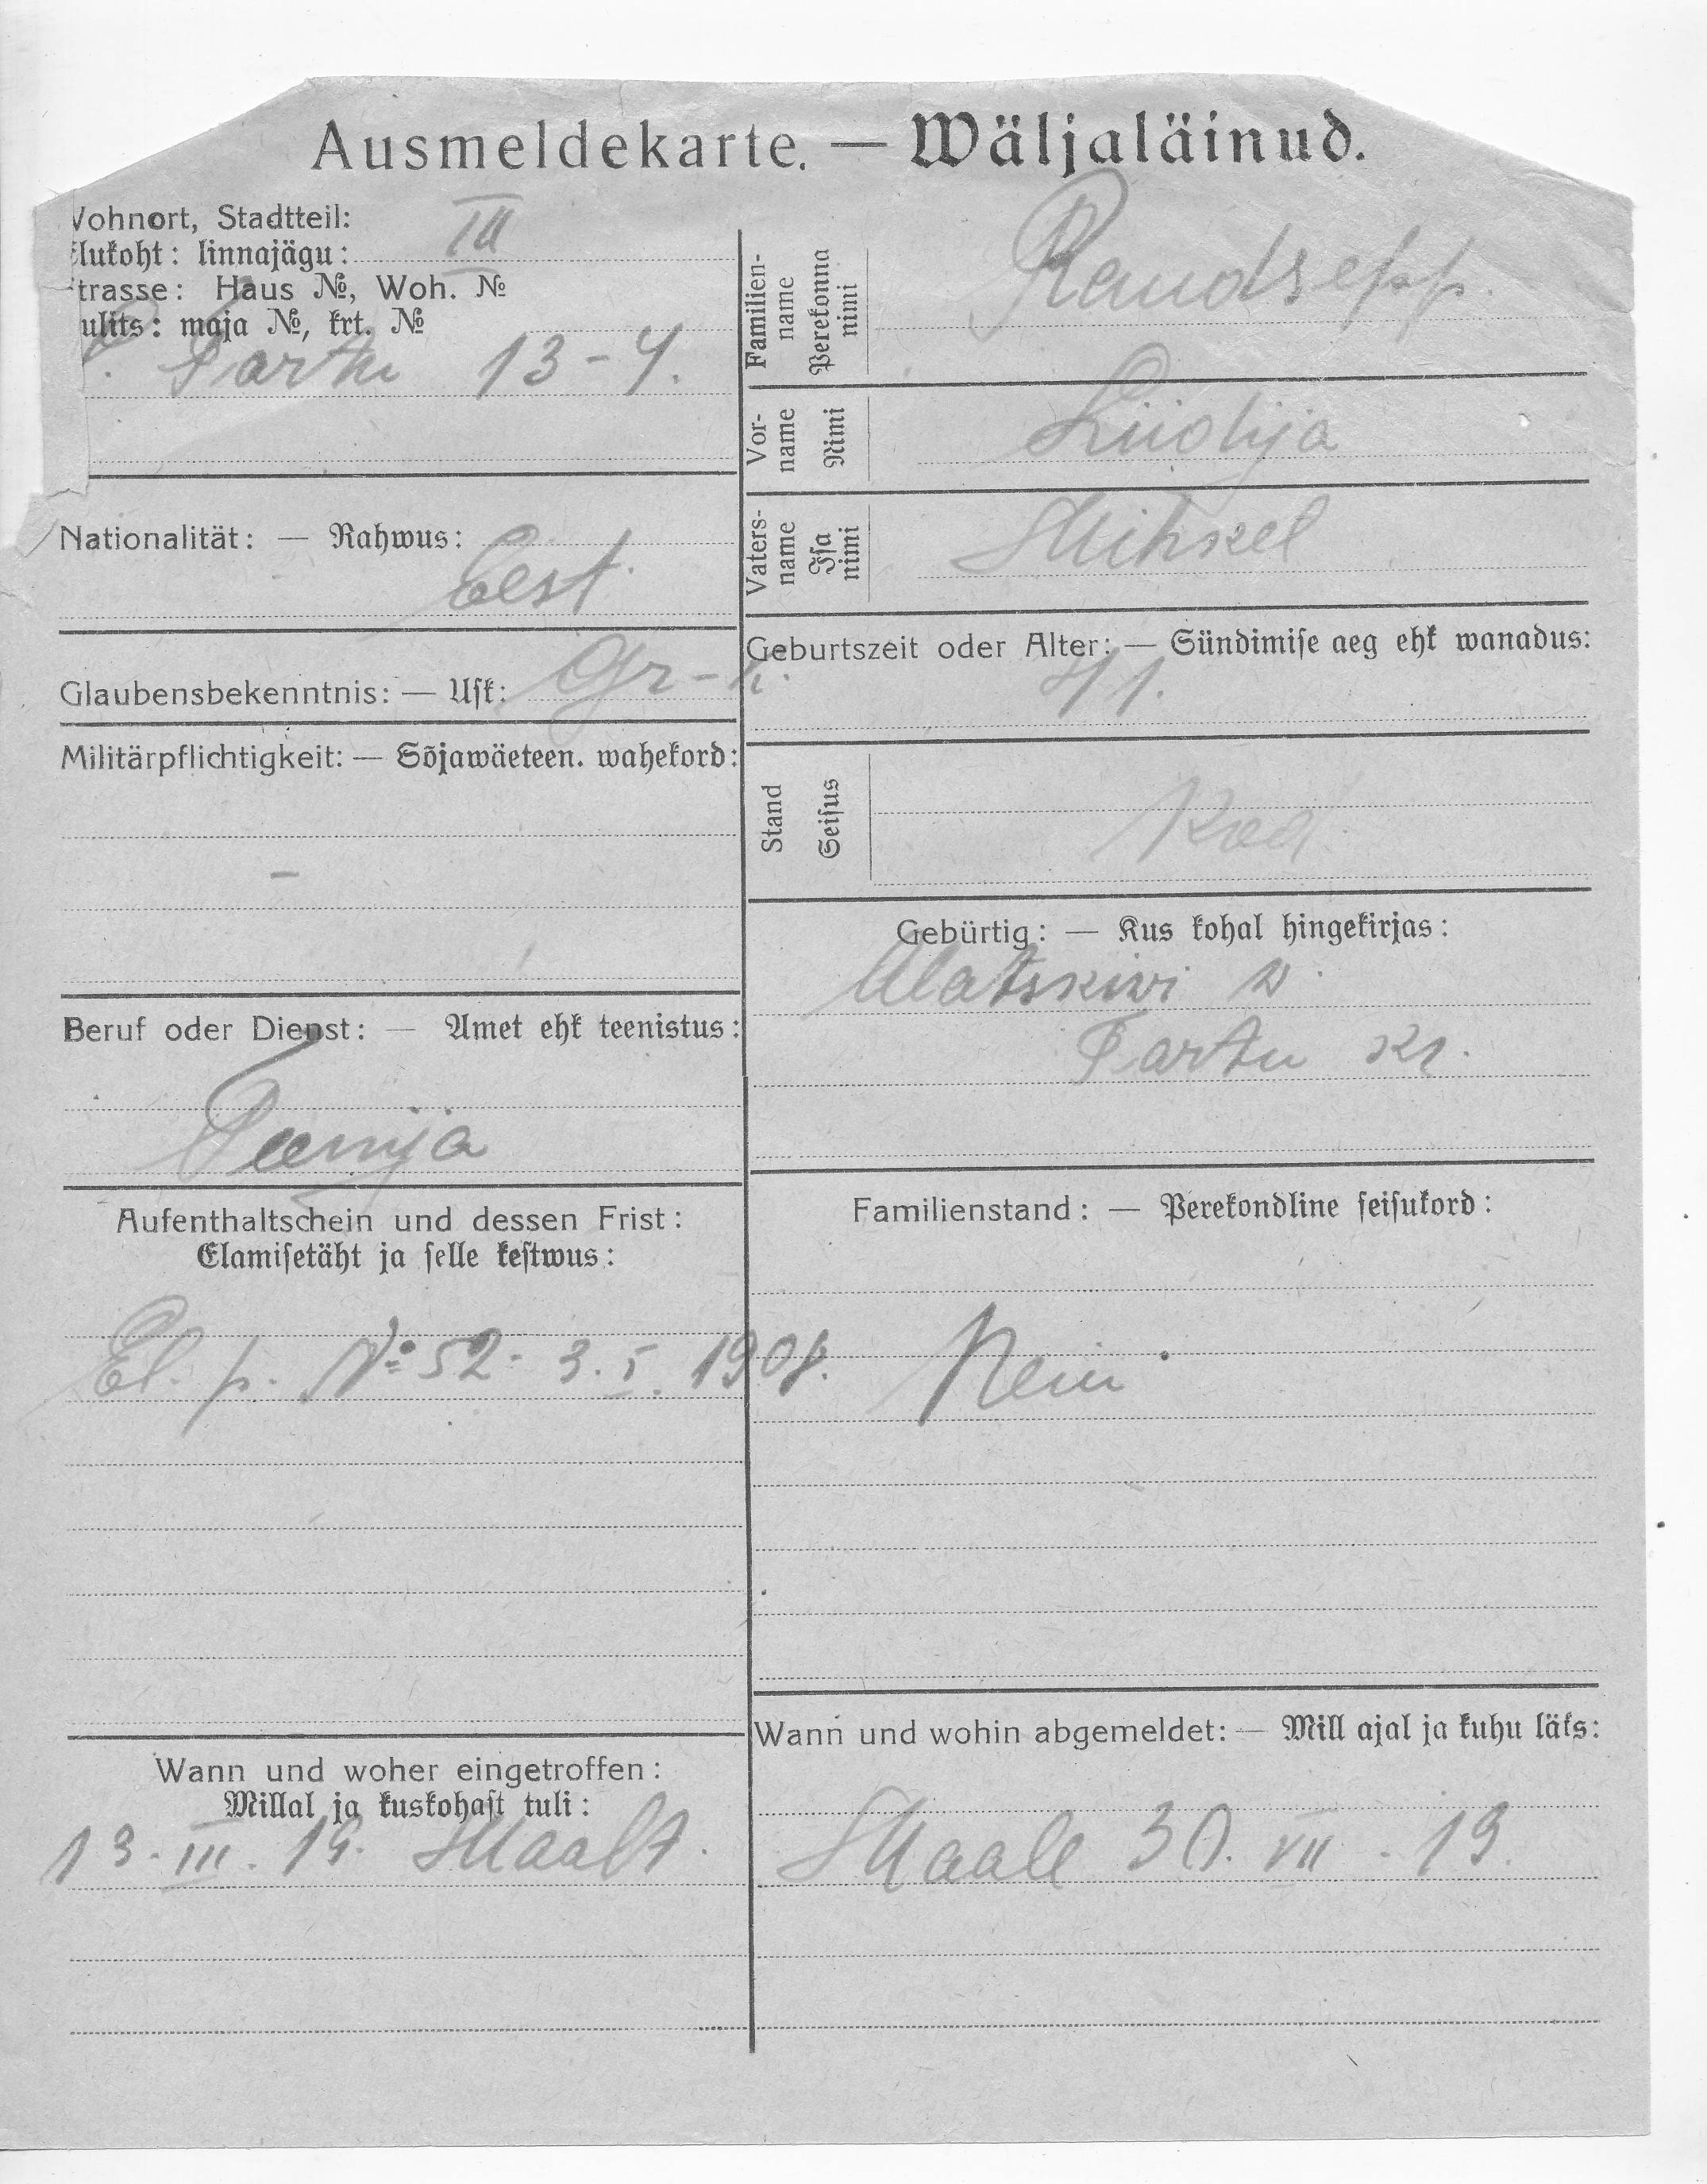 Ausmeldekarte. — Wäljaläinud.
Wohnort, Stadtteil:
Elukoht: linnajägu: III
Strasse: Haus №, Woh. №
ulits: maja №, krt. №
Tartu 13-4.
Nationalität: — Rahwus:
Eest.
Glaubensbekenntnis: — Usk: Gr-k.
Militärpflichtigkeit: — Sõjawäeteen. wahekord:
-
Beruf oder Dienst: — Amet ehk teenistus:
Teenija
Aufenthaltschein und dessen Frist:
Elamisetäht ja selle kestwus:
El. p. № 52 - 3. I. 1908.
Wann und woher eingetroffen:
Millal ja kuskohast tuli:
13. III. 19. Maalt.
Familien-name Perekonna nimi Raudsepp.
Vor-name Nimi Liidija
Vaters-name Isa nimi Mihkel
Geburtszeit oder Alter: — Sündimise aeg ehk wanadus:
41.
Stand Seisus
Gebürtig: — Kus kohal hingekirjas:
Alatskiwi w.
Tartu kr.
Familienstand: — Perekondline seisukord:
Nein
Wann und wohin abgemeldet: — Mill ajal ja kuhu läks:
Maale 30. VII. 19.